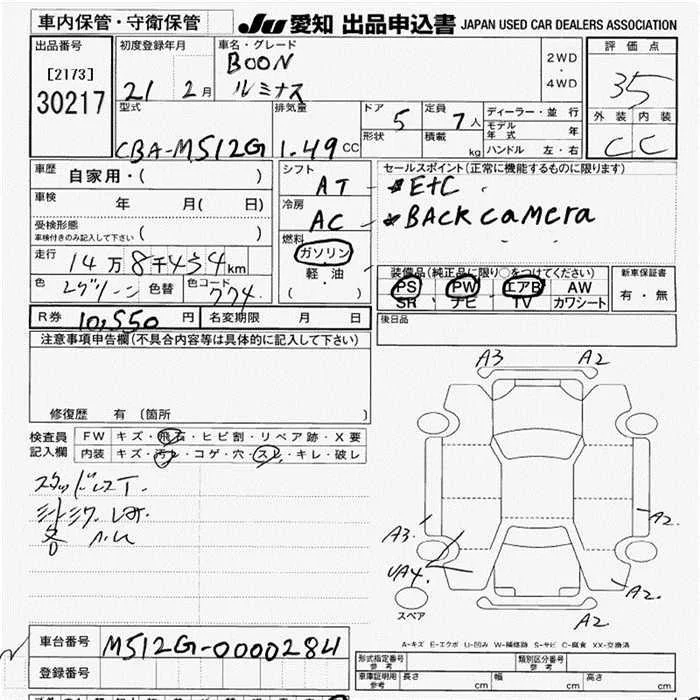 車内保管・守衛保管
JU 愛知 出品申込書 JAPAN USED CAR DEALERS ASSOCIATION
出品番号
[2173]
30217
初度登録年月
21 2月
車名・グレード
BOON
ルミナス
2WD
・
4WD
評価点
35
外装 内装
C C
型式
CBA-M512G
排気量
1.49 CC
ドア
5
形状
定員
7人
積載
kg
ディーラー・並行
モデル年式 年
ハンドル 左・右
車歴
自家用・( )
車検
年 月( 日)
受検形態
車検付きのみ記入して下さい ( )
走行
14万8千434km
色
色替
色コード
774
シフト
AT
冷房
AC
燃料
ガソリン
軽・油
( )
セールスポイント(正常に機能するものに限ります)
★EtC
★BACK camera
装備品(純正品に限り○をつけてください)
PS PW エアB AW
SR ナビ TV カワシート
新車保証書
有・無
R券 10,550円 名変期限 月 日
後日品
注意事項申告欄(不具合内容等は具体的に記入して下さい)
修復歴 有〔箇所 〕
検査員
記入欄
FW キズ・飛石・ヒビ割・リペア跡・X要
内装 キズ・汚レ・コゲ・穴・スレ・キレ・破レ
スタッドレスT.
A3 A2
A3.
UA4.
A2.
A2.
A2
スペア
A-キズ E-エクボ U-凹み W-補修跡 S-サビ C-腐食 XX-交換済
車台番号 M512G-0000284
登録番号
形式指定番号
参考
類別区分番号
参考
車庫証明用
参考
長さ cm 幅 cm 高さ cm